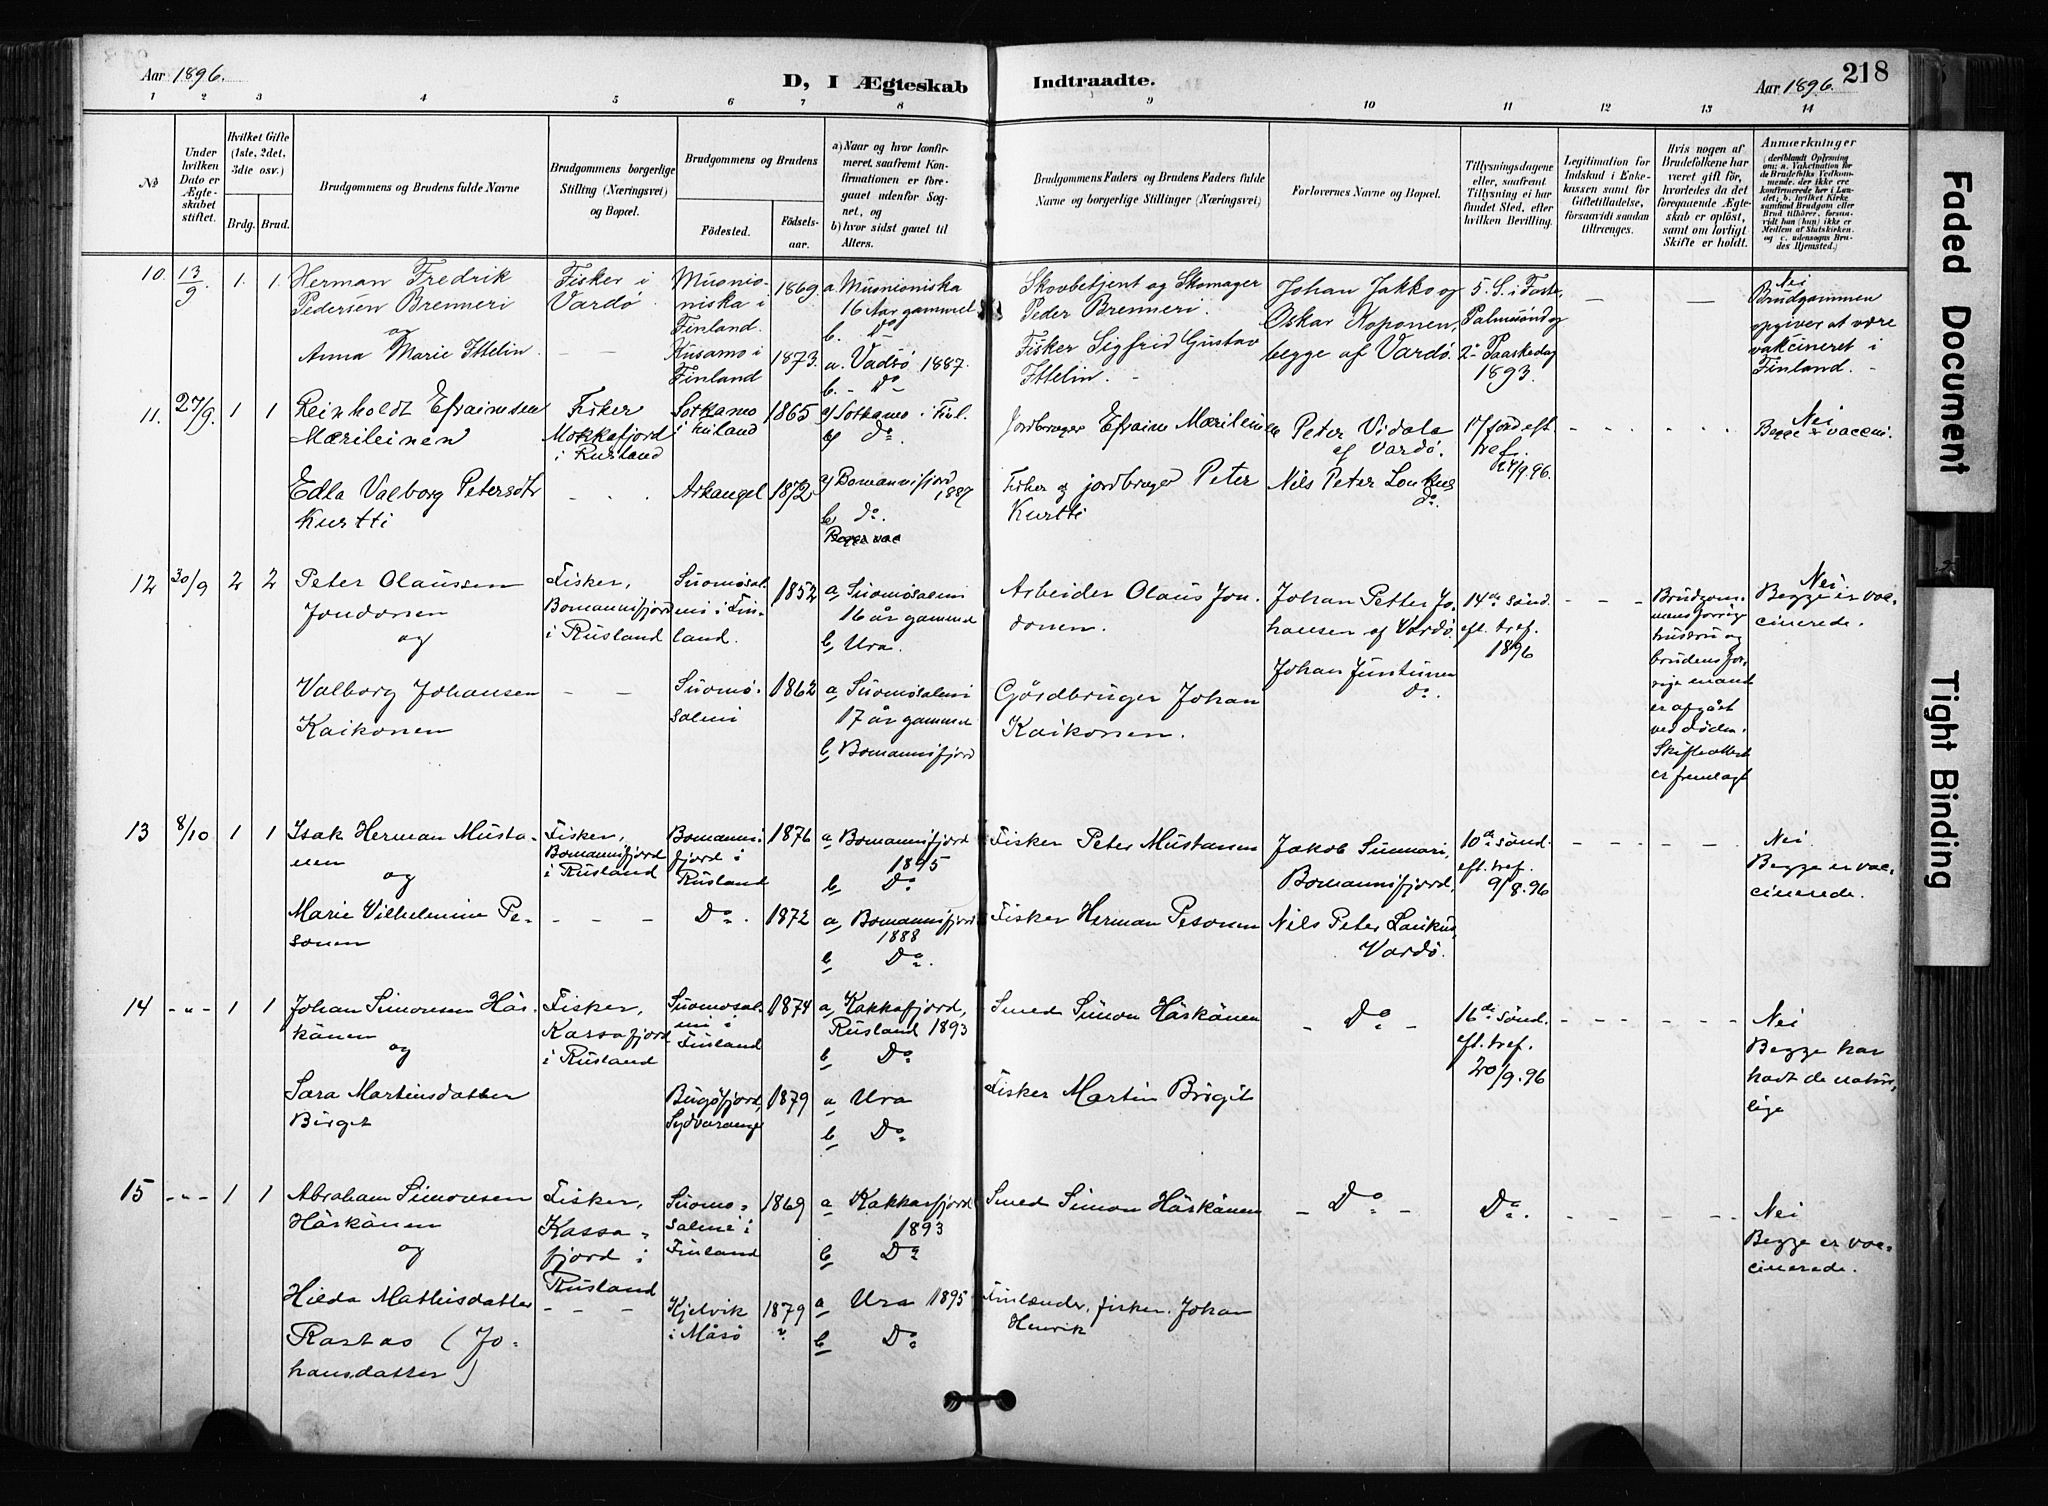 Aar 1896.
D, I Ægteskab Indtraadte.
Aar 1896.
218
1 2 3 4 5 6 7 8 9 10 11 12 13 14
No
Under hvilken Dato er Ægteskabet stiftet.
Hvilket Gifte (1ste, 2det, 3die osv.)
Brdg. Brud.
Brudgommens og Brudens fulde Navne
Brudgommens borgerlige Stilling (Næringsvei) og Bopæl.
Brudgommens og Brudens
Fødested.
Fødsels-aar.
a) Naar og hvor konfirmeret, saafremt Konfirmationen er foregaaet udenfor Sognet, og
b) hvor sidst gaaet til Alters.
Brudgommens Faders og Brudens Faders fulde Navne og borgerlige Stillinger (Næringsvei)
Forlovernes Navne og Bopæl.
Tillysningsdagene eller, saafremt Tillysning ei har fundet Sted, efter hvilken Bevilling.
Legitimation for Indskud i Enkekassen samt for Giftetilladelse, forsaavidt saadan tiltrænges.
Hvis nogen af Brudefolkene har været gift før, hvorledes da det foregaaende Ægteskab er opløst, samt om lovligt Skifte er holdt.
Anmærkninger
10. 13/9. 1. 1. Herman Fredrik Pedersen Brenneri
Fisker i Vardø
Muonioniska i Finland.
1869.
a. Muonioniska 16 Aar gammel
b. Do
Skovbetjent og Skomager Peder Brenneri.
Johan Jakko og Oskar Koponen, begge af Vardø.
5. S. i Faste, Palmesønd og 2. Paaskedag 1893.
— —
Nei
Brudgommen opgiver at være vakcineret i Finland.
og
Anna Marie Ittelin.
— —
Kusamo i Finland
1873.
a. Vadsø 1887.
b. - Do
Fisker Sigfrid Gustav Ittelin. -
11. 27/9. 1 1 Reinholdt Efraimsen Mærileinen
Fisker Mokkafjord i Rusland
Sotkamo i Finland
1865
a) Sotkamo i Finl.
b) Do.
Jordbruger Efraim Mærileinen
Peter Vidala af Vardø.
17 sønd eft. tref. 27/9.96.
Nei
Begge er vaccini.
Edla Valborg Petersdtr Kurtti
Arkangel
1872
a) Bomannifjord 1887
b) do.
Begge vac
Fisker og jordbruger Peter Kurtti
Nils Peter Loukus Do.
12 30/9 2 2 Peter Olaussen Jondonen
og
Fisker, Bomannifjord i Rusland
Suomosalmi i Finland.
1852
a, Suomosalmi 16 år gammel
b, Ura.
Arbeider Olaus Jondonen.
Johan Petter Johansen af Vardø.
Johan Juntunen Do.
14de sønd. eft. tref. 1896
Brudgommens forrige hustru og brudens forrige mand er afgåt ved døden. Skifteattest er fremlagt
Nei.
Begge er vaccinerede.
Valborg Johansen Kaikonen
— —
Suomosalmi
1862
a, Suomosalmi 17 år gammel
b, Bomannifjord
Gårdbruger Johan Kaikonen.
13 8/10 1 1 Isak Herman Mustanen
og
Fisker, Bomannifjord i Rusland
Bomannifjord i Rusland
1876
a, Bomannifjord 1895
b, Do
Fisker Peter Mustanen
Jakob Sunnari, Bomannifjord,
10de sønd. eft. tref. 9/8.96
Nei.
Begge er vaccinerede.
Marie Vilhelmine Pesonen
— — —
Do.
1872
a, Bomannifjord 1888
b Do.
Fisker Herman Pesonen
Nils Peter Loukus, Vardø.
14 -"- 1 1 Johan Simonsen Häskänen
og
Fisker, Kassafjord i Rusland
Suomosalmi i Finland
1874
a, Kakkafjord, Rusland 1893
b Do
Smed Simon Häskänen
- Do -
16de sønd. eft. tref. 20/9.96
Nei
Begge har hadt de naturlige
Sara Martinsdatter Birget
Bugøfjord, Sydvaranger
1879
a Ura
b Do
Fisker Martin Brigit
15 -"- 1 1 Abraham Simonsen Häskänen
og
Fisker, Kassafjord i Rusland
Suomosalmi i Finland
1869
a Kakkafjord 1893
b Do
Smed Simon Häskänen
- Do -
Do.
Nei
Begge er vaccinerede.
Hilda Mathisdatter Rastas (Johansdatter)
- - -
Kjelvik i Måsø
1879
a Ura 1895
b Do
Finlænder, fisker. Johan Henrik
Faded Document
Tight Binding